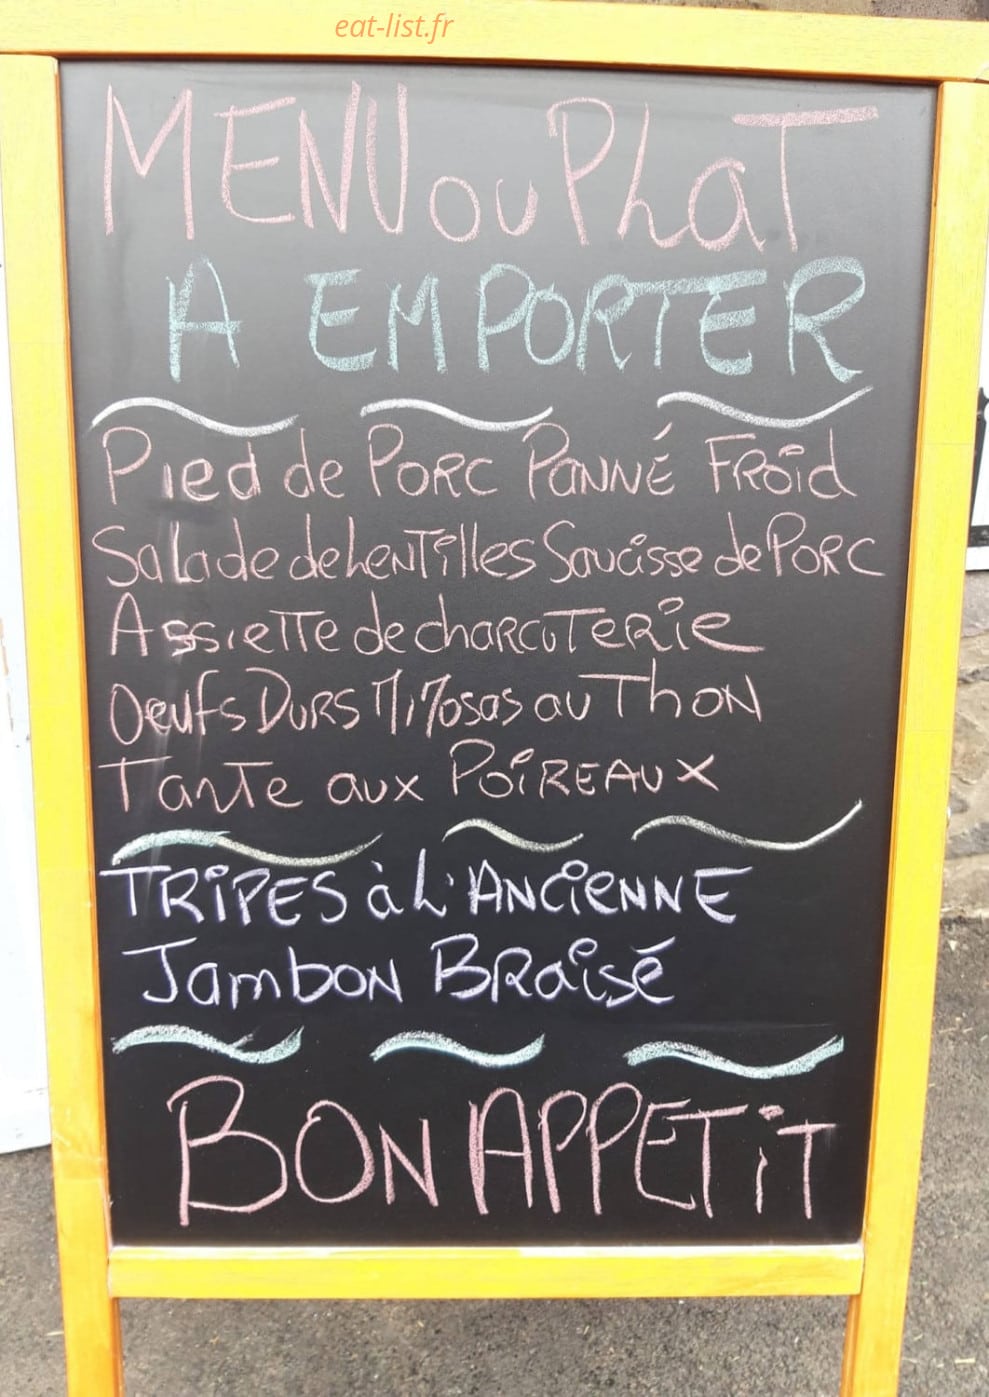 eat-list.fr
MENU ou PLaT
A EMPORTER
Pied de PORC PaNNÉ FRoid
Salade de LenTilles Saucisse de PORC
AssieTTe de charcuTERie
Oeufs DURS MiMosas au ThoN
Tarte aux PoiREAUX
TRiPES à L'ANCiENNE
JambON BRaisé
BON APPETiT